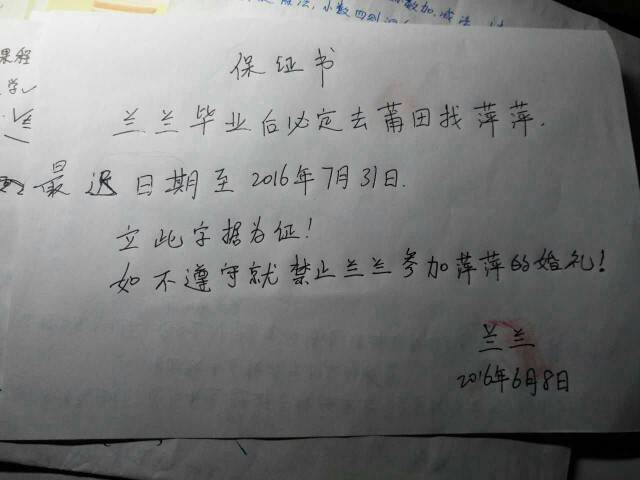 小数四则
加、减法
果程
学
保证书
兰兰毕业后必定去莆田找萍萍.
最迟日期至2016年7月31日.
立此字据为征!
如不遵守就禁止兰兰参加萍萍的婚礼!
兰兰
2016年6月8日